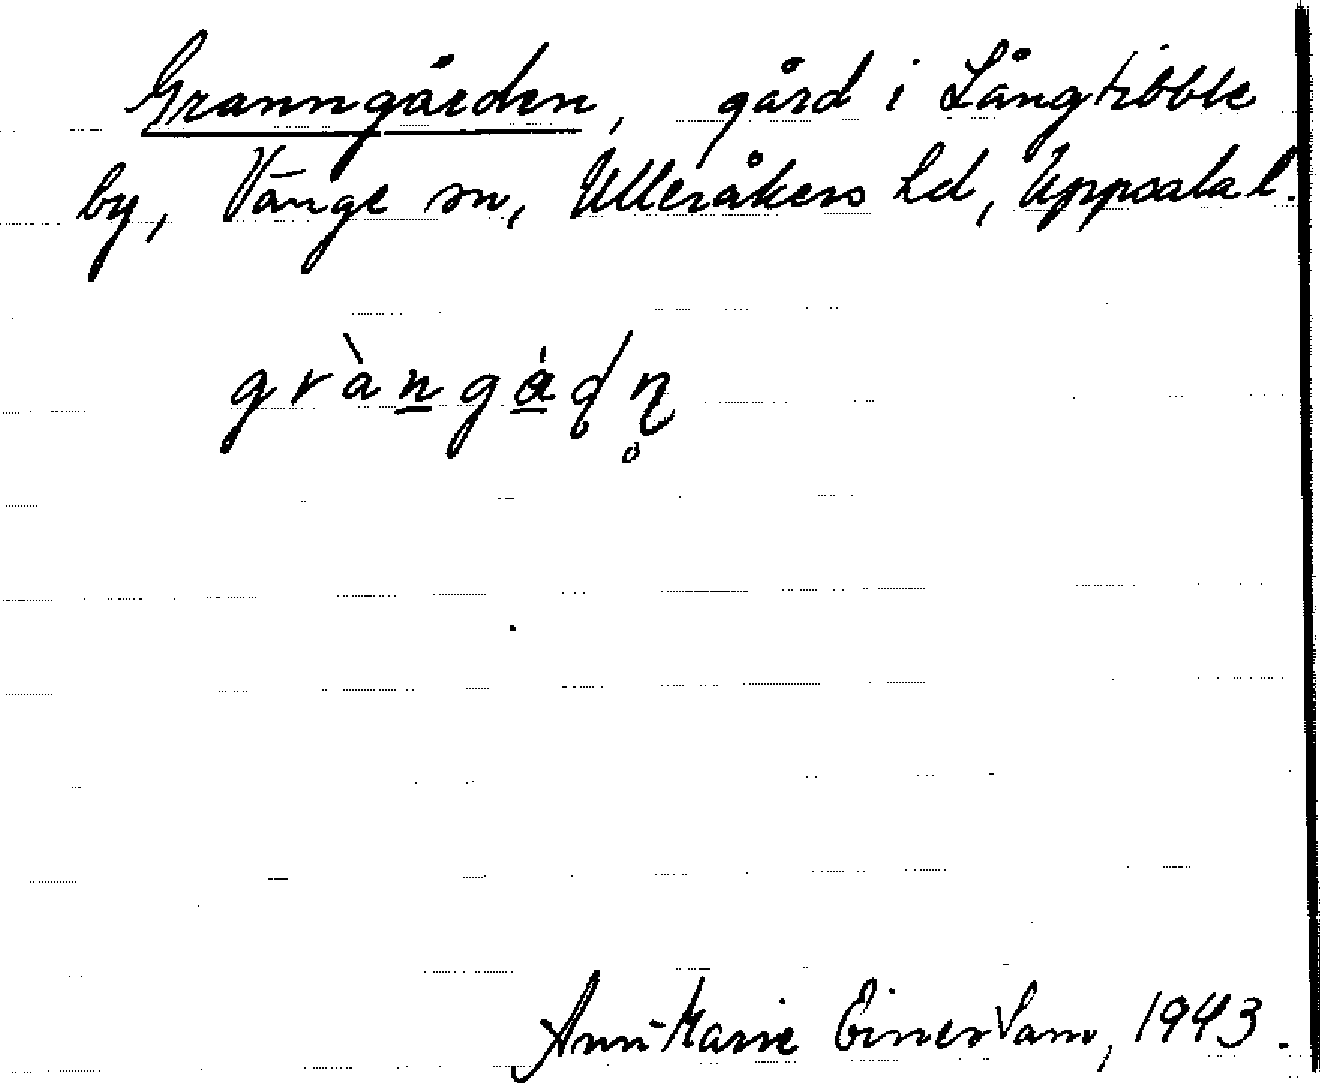 Granngården, gård i Långtibble
by, Vänge sn, Ulleråkers hd, Uppsala l.
Ann-Marie 1943.